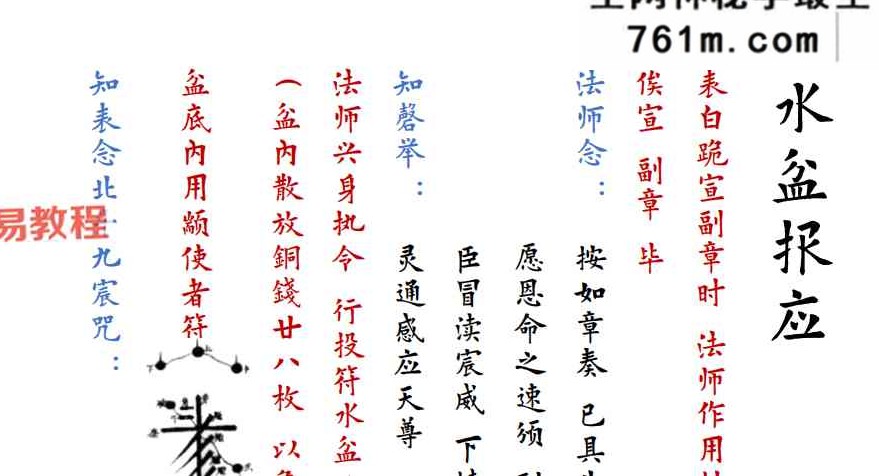 761m.com
水盆报应
表白跪宣副章时 法师作用
俟宣 副章 毕
法师念： 按如章奏 已具
愿恩命之速须
臣冒渎宸威 下
知磬举： 灵通感应天尊
法师兴身执令 行投符水盆
（盆内散放銅錢廿八枚 以
盆底内用使者符
知表念北九宸咒：
易教程